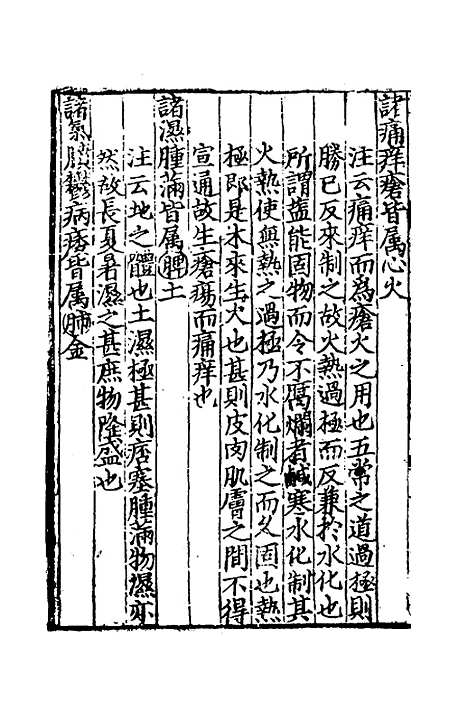 諸痛痒瘡皆属心火
注云痛痒而為瘡火之用也五常之道過極則
勝已反來制之故火熱過極而反兼於水化也
所謂塩能固物而令不腐爛者鹹寒水化制其
火熱使無熱之過極乃水化制之而久固也熱
極即是木來生火也甚則皮肉肌膚之間不得
宣通故生瘡瘍而痛痒也
諸濕腫滿皆属脾土
注云地之體也土濕極甚則痞塞腫滿物濕亦
然故長夏暑濕之甚庶物隆盛也
諸氣鬱病痿皆属肺金